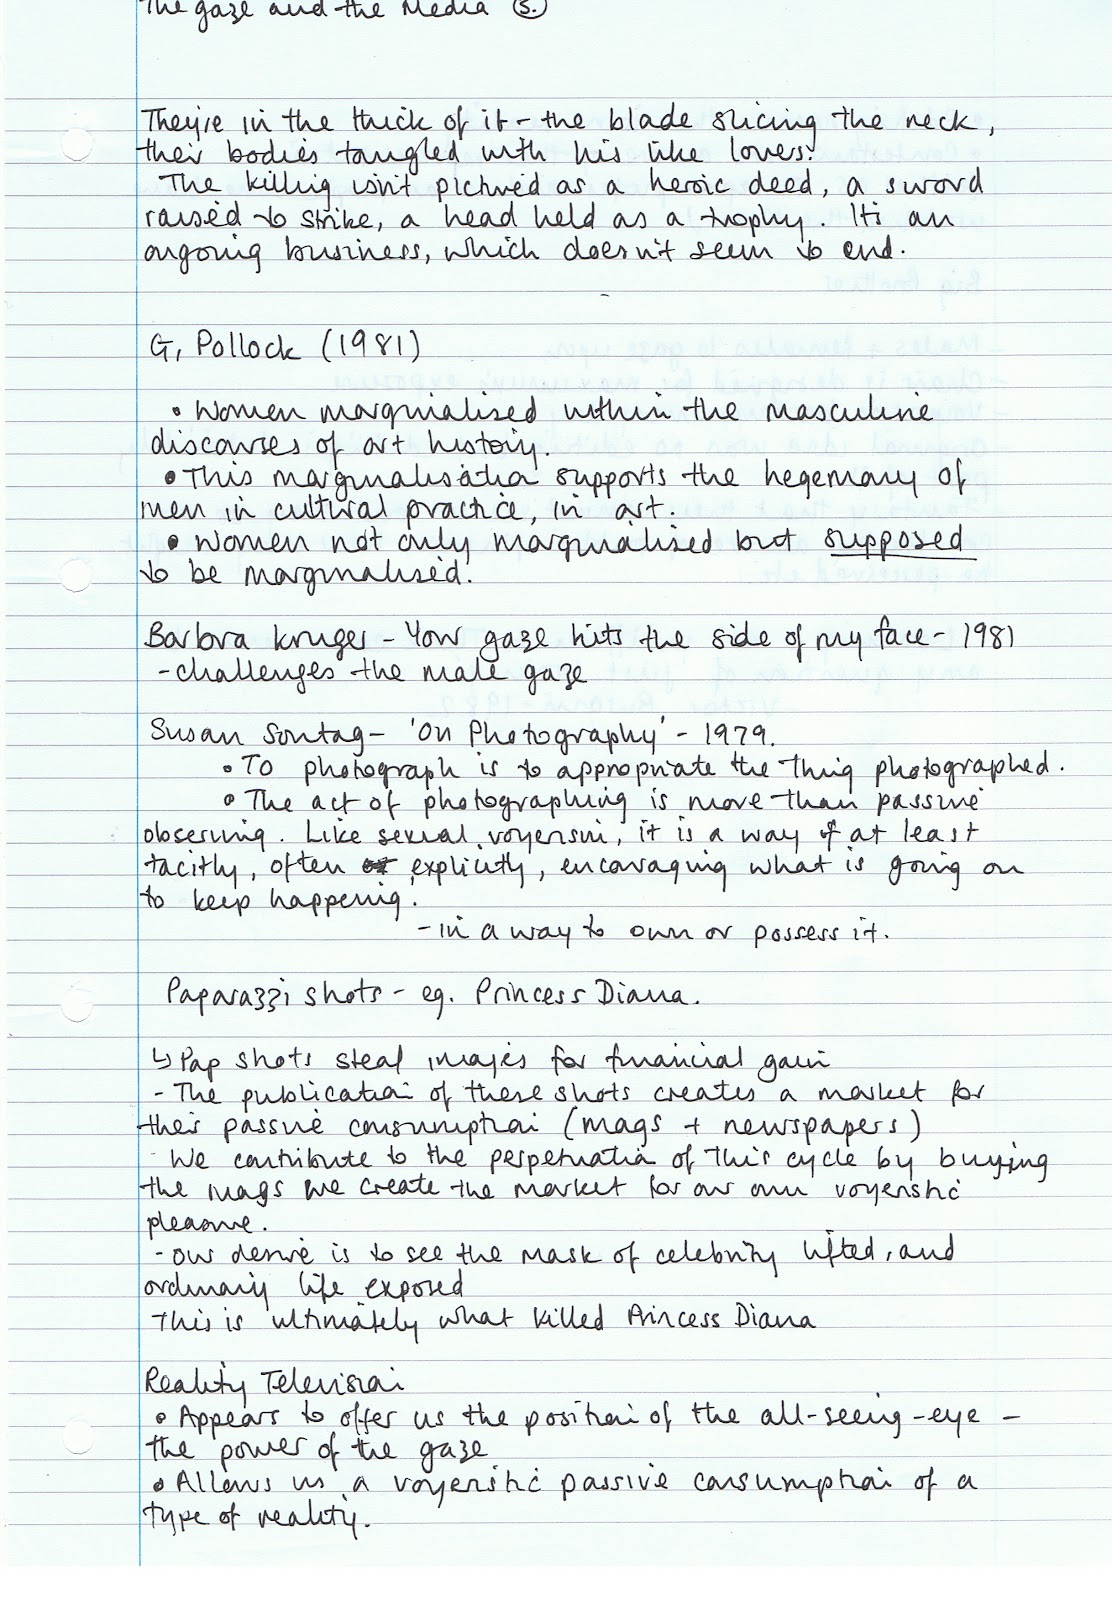 The gaze and the Media 5.
They're in the thick of it - the blade slicing the neck,
their bodies tangled with his like lovers.
The killing isn't pictured as a heroic deed, a sword
raised to strike, a head held as a trophy. It's an
ongoing business, which doesn't seem to end.
G, Pollock (1981)
• Women marginialised within the masculine
discourses of art history.
• This marginalisation supports the hegemony of
men in cultural practice, in art.
• Women not only marginalised but supposed
to be marginalised.
Barbra Kruger - Your gaze hits the side of my face - 1981
- challenges the male gaze
Susan Sontag - 'On Photography' - 1979.
• To photograph is to appropriate the thing photographed.
• The act of photographing is more than passive
observing. Like sexual voyersim, it is a way of at least
tacitly, often explicitly, encouraging what is going on
to keep happening.
- in a way to own or possess it.
Paparazzi shots - eg. Princess Diana.
↳ Pap shots steal images for financial gain
- The publication of these shots creates a market for
their passive consumption (mags + newspapers)
- We contribute to the perpetuation of this cycle by buying
the mags we create the market for our own voyeristic
pleasure.
- Our desire is to see the mask of celebrity lifted, and
ordinary life exposed
This is ultimately what killed Princess Diana
Reality Television
• Appears to offer us the position of the all-seeing-eye -
the power of the gaze
• Allows us a voyeristic passive consumption of a
type of reality.